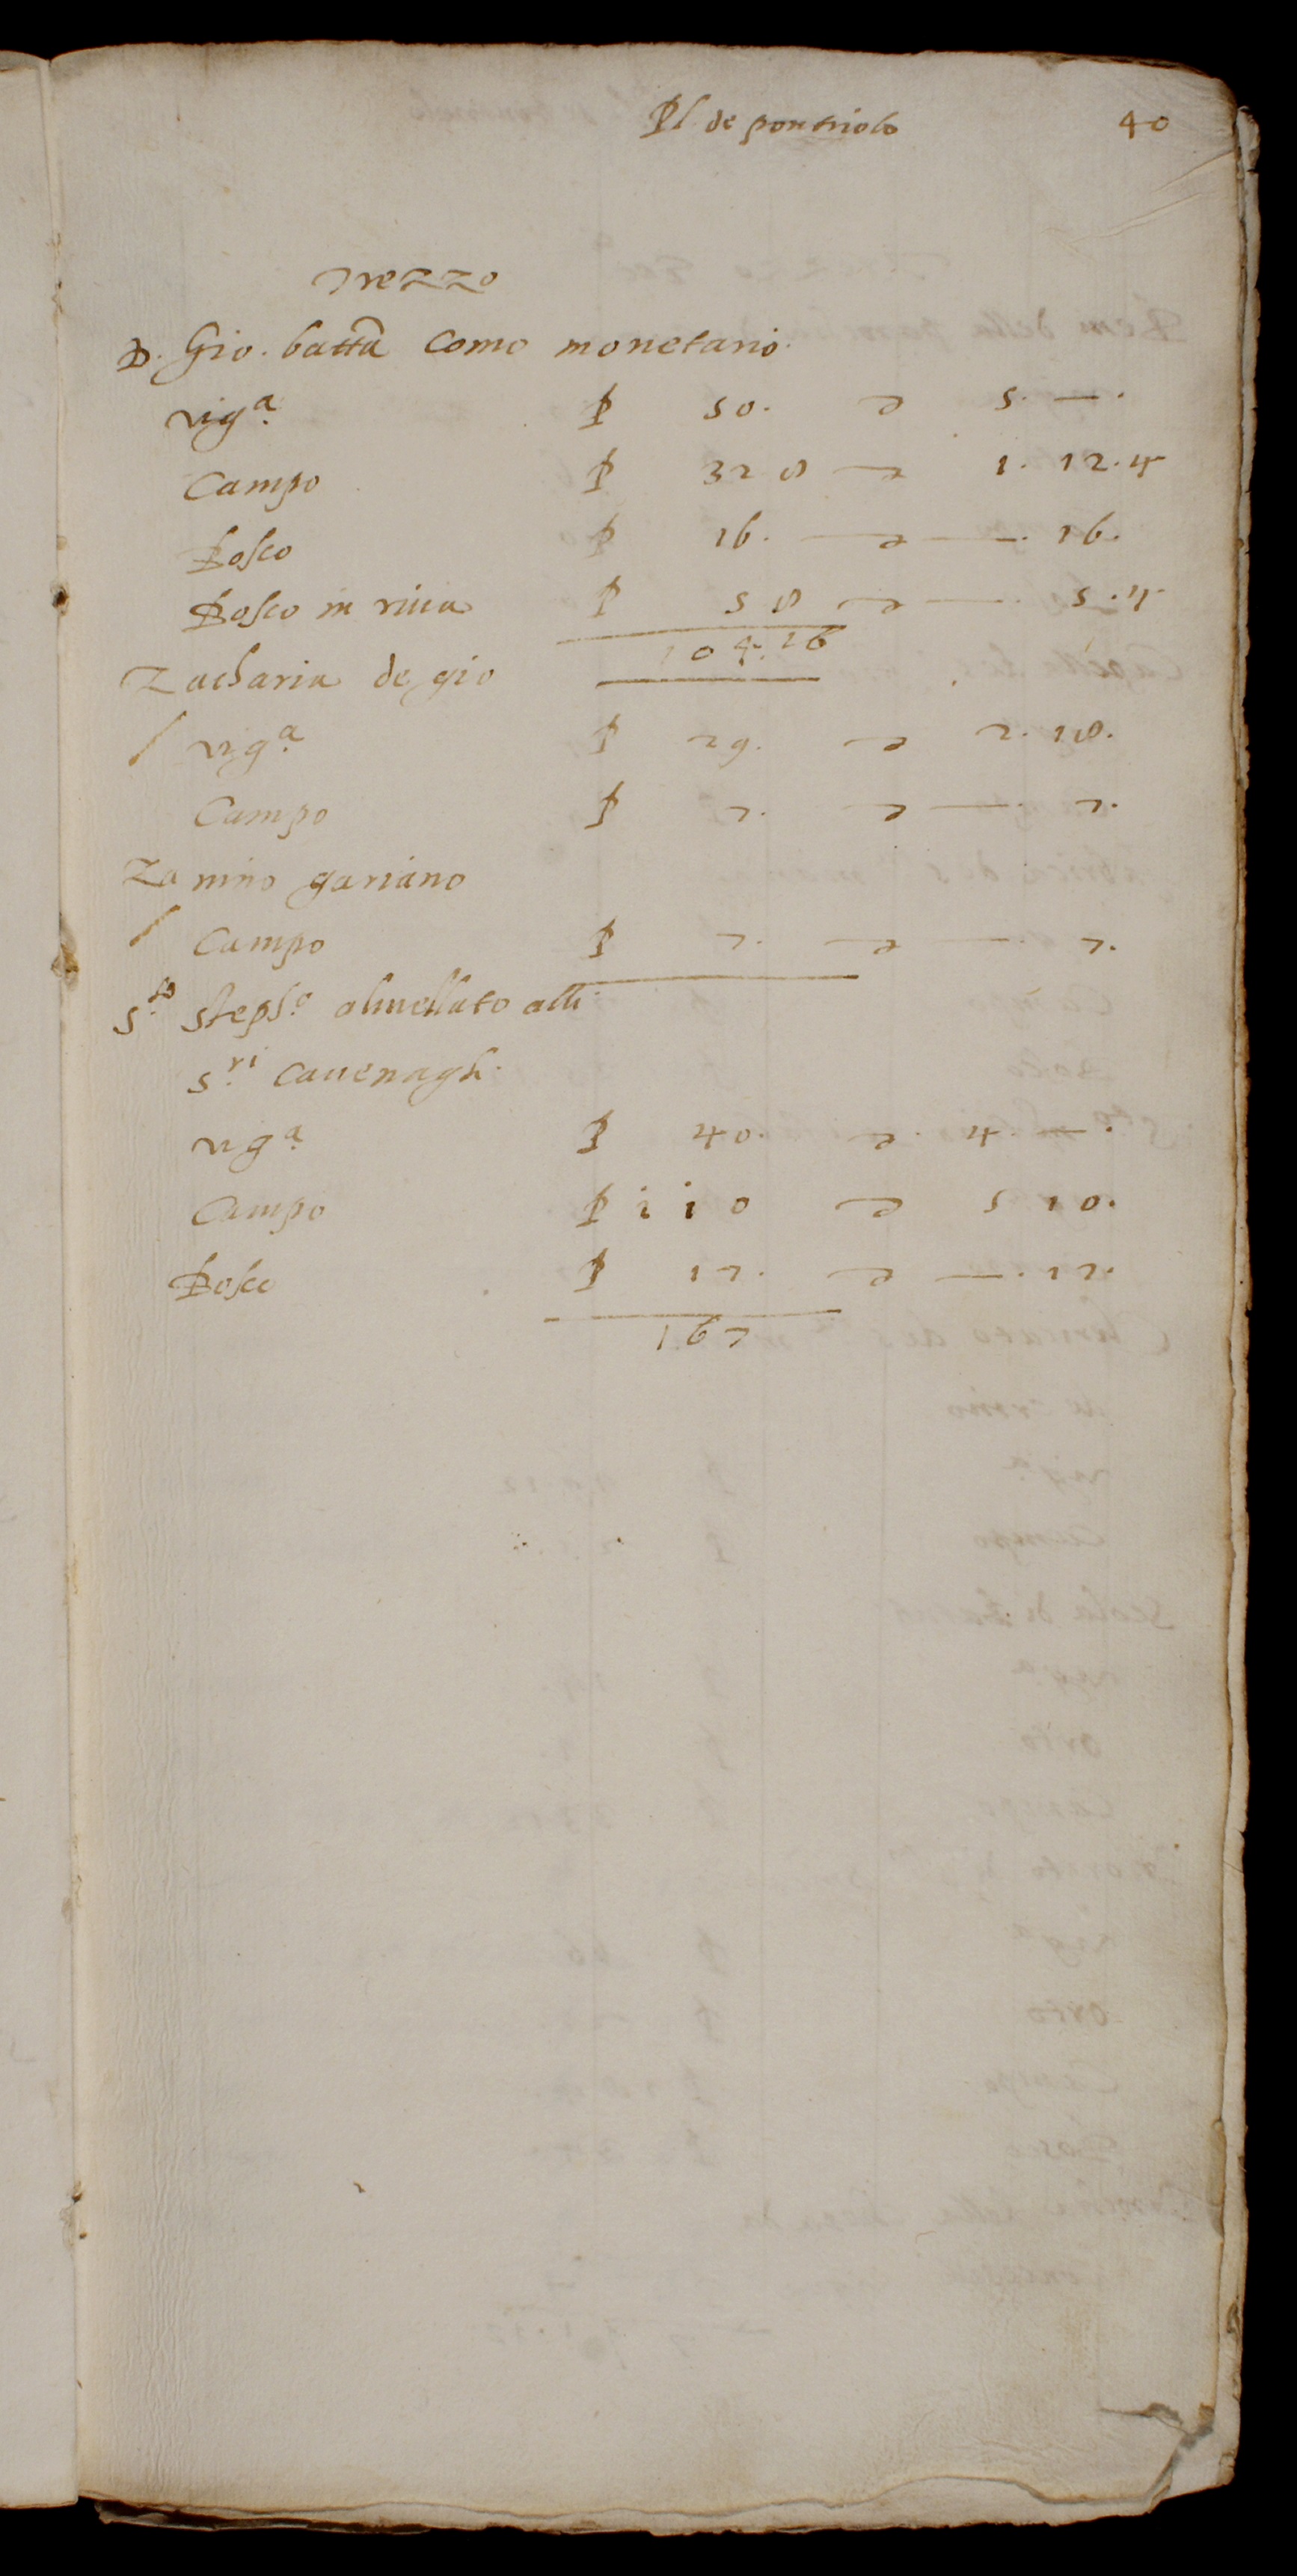 Pl. de pontriolo 40
Trezzo
D. Gio. batta Como monetario.
vig.a P 50. a 5. —.
Campo P 32 8 a 1. 12. 4
Bosco P 16. a —. 16.
Bosco in riua P 5 8 a —. 5. 4
104. 16
Zacharia de gio
/ vig.a P 29. a 2. 18.
Campo P 2. a —. 2.
Zanino gariano
/ Campo P 2. a —. 2.
S.to Steph.o aliuellato alli
S.ri Cauenagh.
vig.a P 40. a. 4. —.
Campo P 110 a 5 10.
Bosco P 17. a —. 17.
167